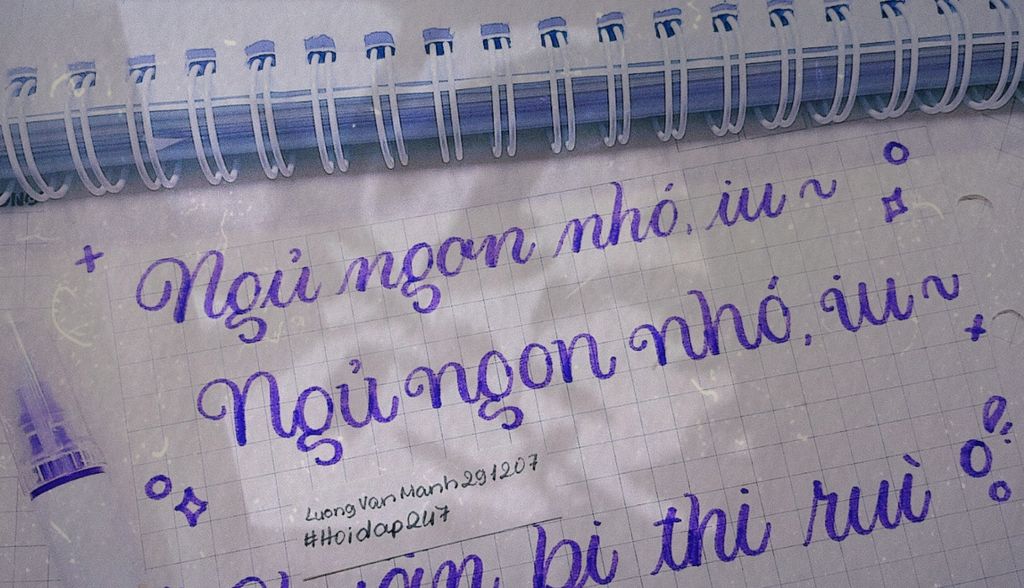 Ngủ ngon nhó, iu ~
Ngủ ngon nhó, iu ~
Luong Van Manh 291207
#Hoidap247
bị thi rùi